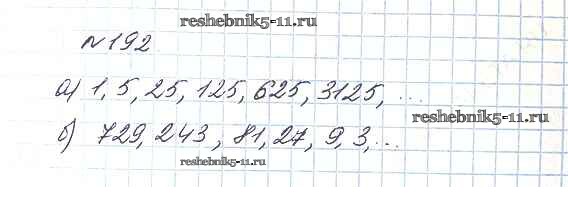 reshebnik5-11.ru
№192
а) 1, 5, 25, 125, 625, 3125, ...
reshebnik5-11.ru
б) 729, 243, 81, 27, 9, 3, ...
reshebnik5-11.ru